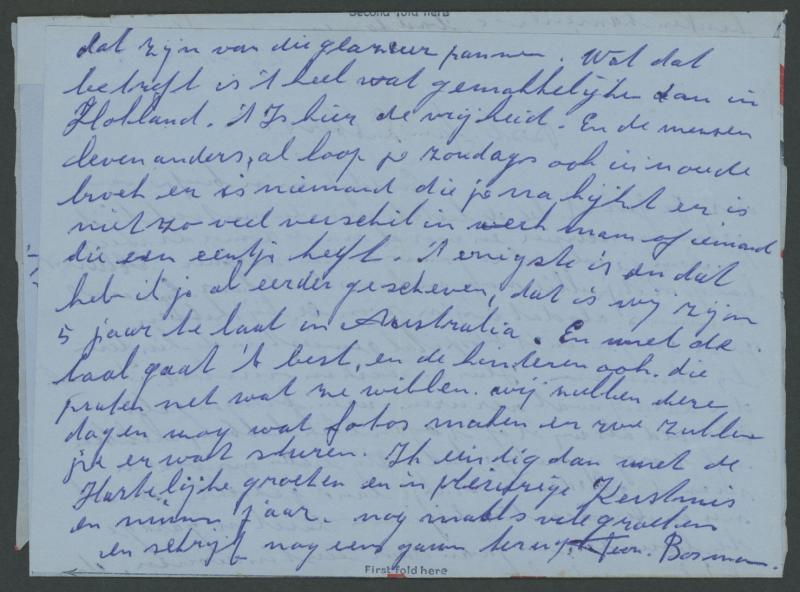 Second fold here
dat zijn van die glazuur pannen. Wat dat
betreft is 't heel wat gemakkelijker dan in
Holland. 't Is hier de vrijheid. En de mensen
leven anders, al loop je zondags ook in n oude
broek er is niemand die je na kijkt er is
niet zo veel verschil in werk man of iemand
die een centje heeft. 't enigste is en dat
heb ik je al eerder geschreven, dat is wij zijn
5 jaar te laat in Australia. En met de
taal gaat 't best, en de kinderen ook. die
praten net wat ze willen. wij zullen deze
dagen nog wat fotos maken en we zullen
je er wat sturen. Ik eindig dan met de
Hartelijke groeten en n pleizirige Kerstmis
en nieuw jaar. nog maals vele groeten
en schrijf nog eens gauw terug. Bosman.
First fold here